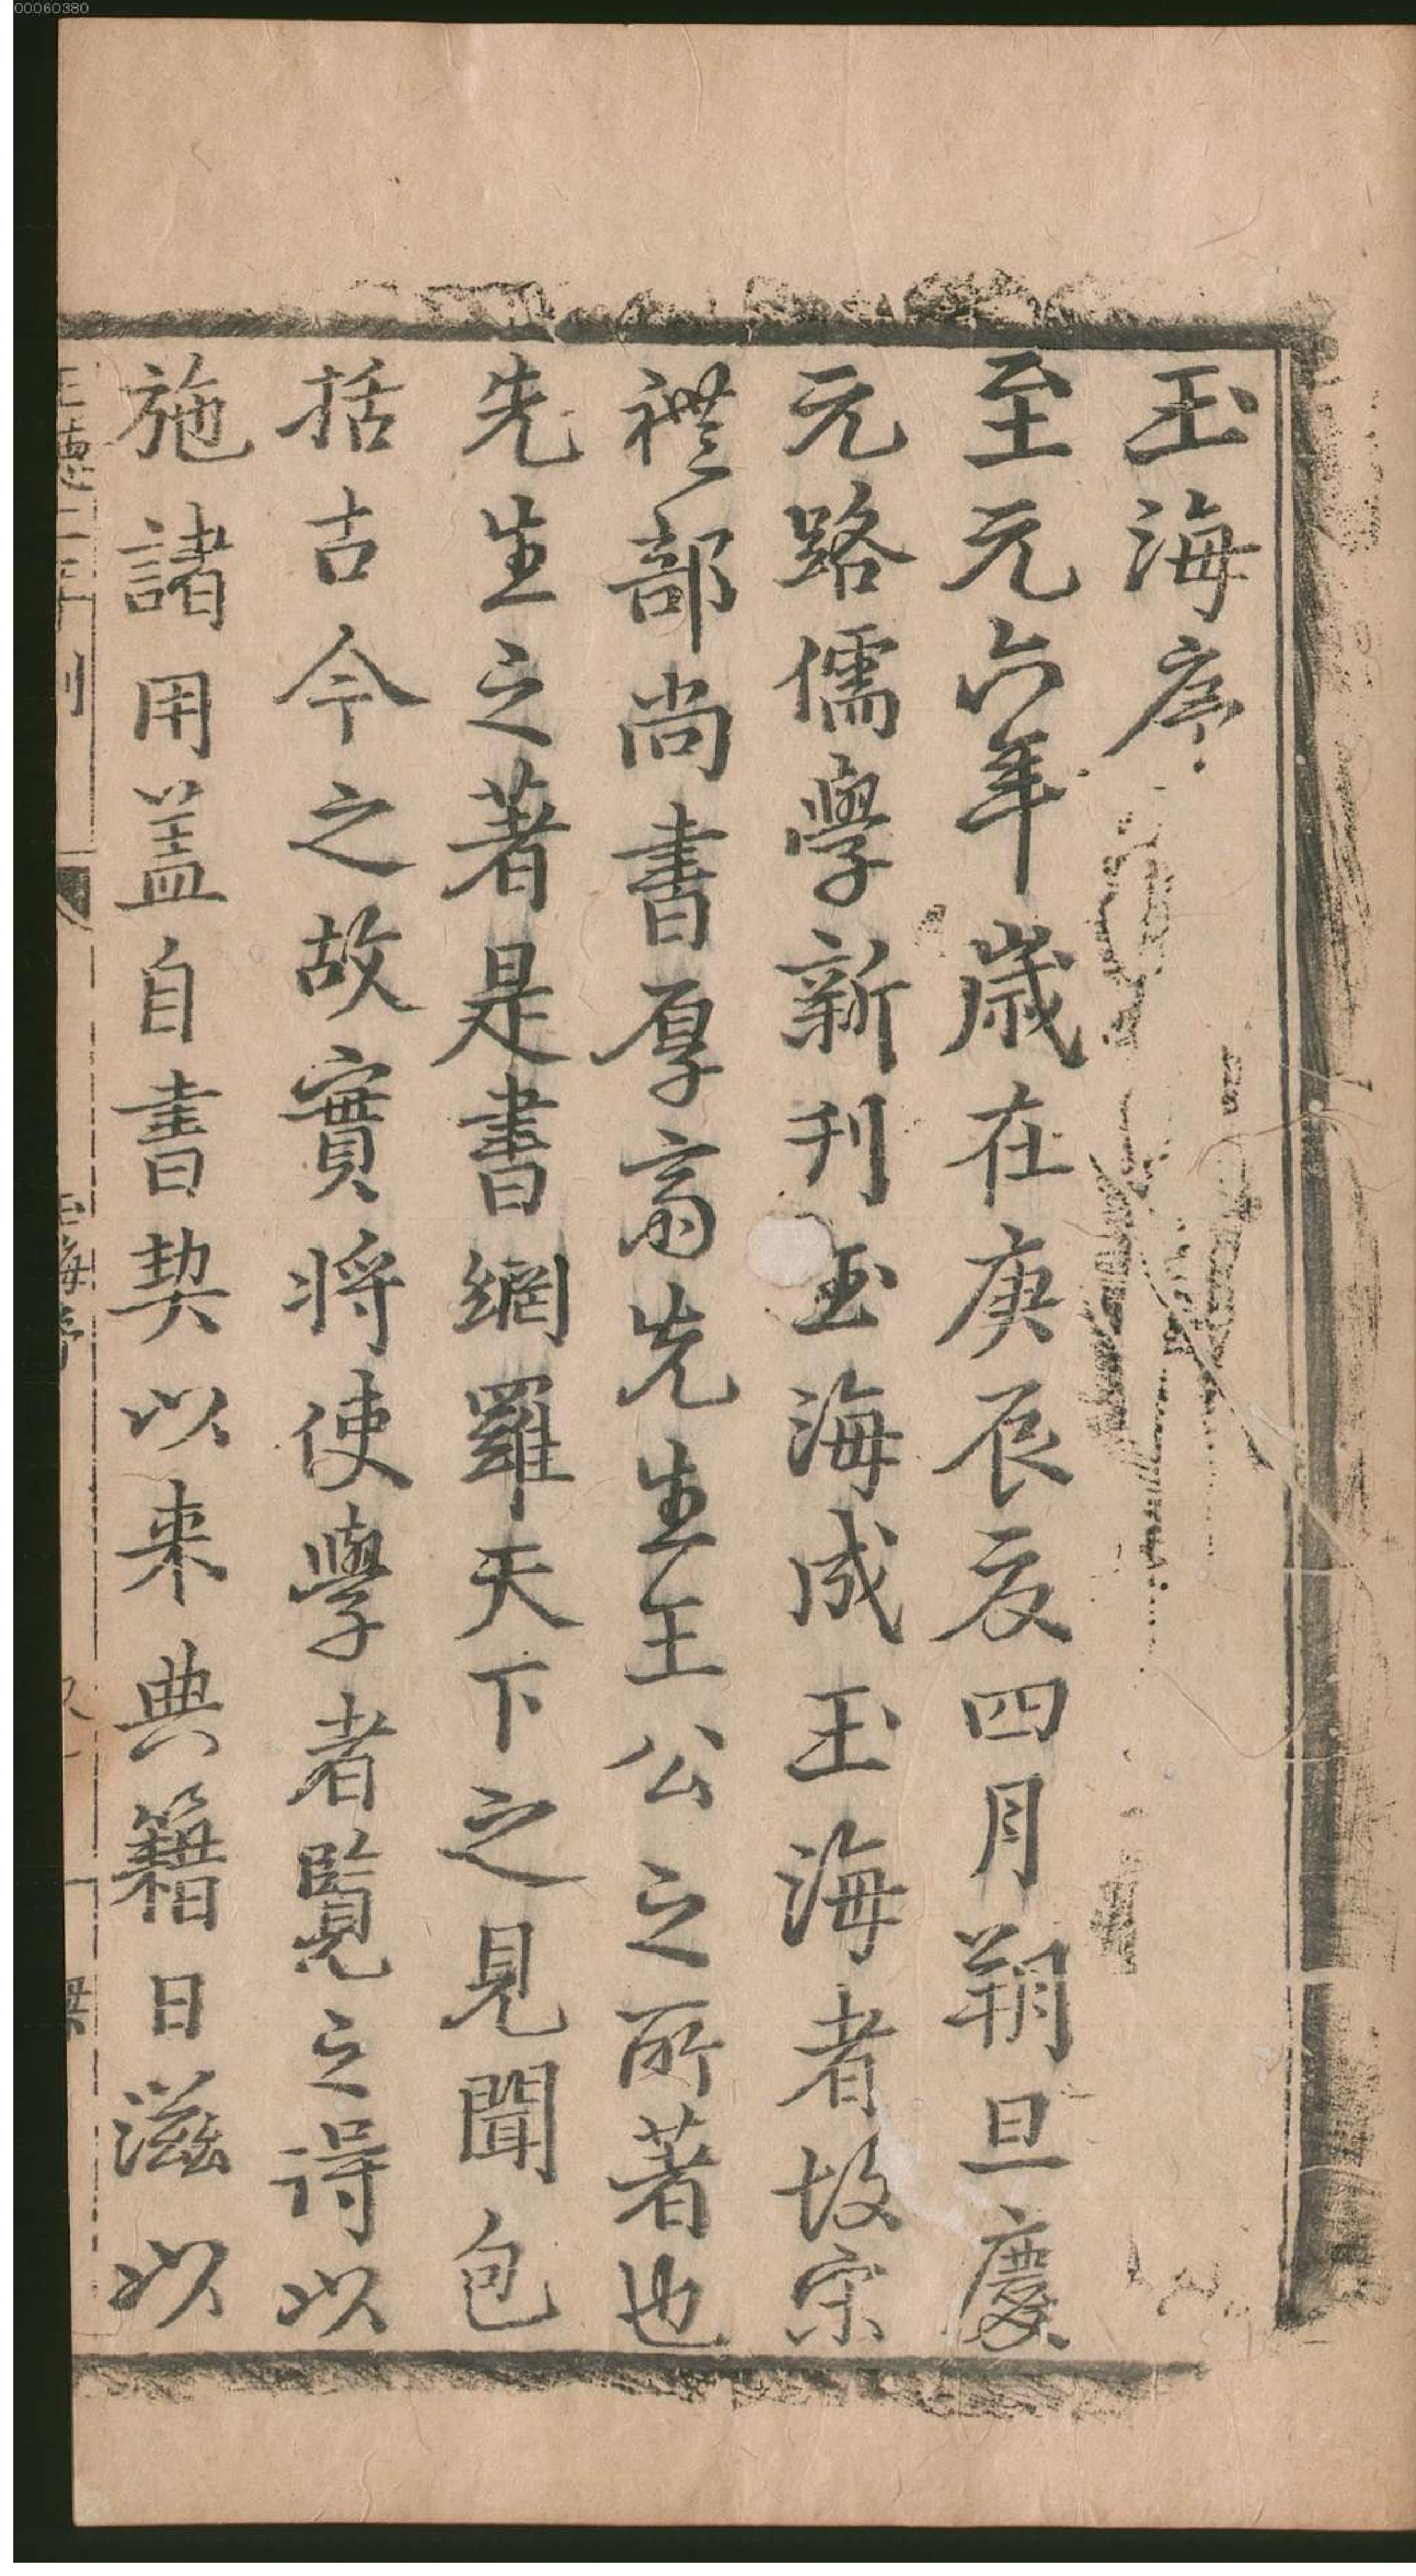 00060380
玉海序
至元六年歲在庚辰夏四月朔旦慶
元路儒學新刊玉海成玉海者故宋
禮部尚書厚齋先生王公之所著也
先生之著是書網羅天下之見聞包
括古今之故實將使學者覽之得以
施諸用盖自書契以来典籍日滋以
正德二年刊
玉海序